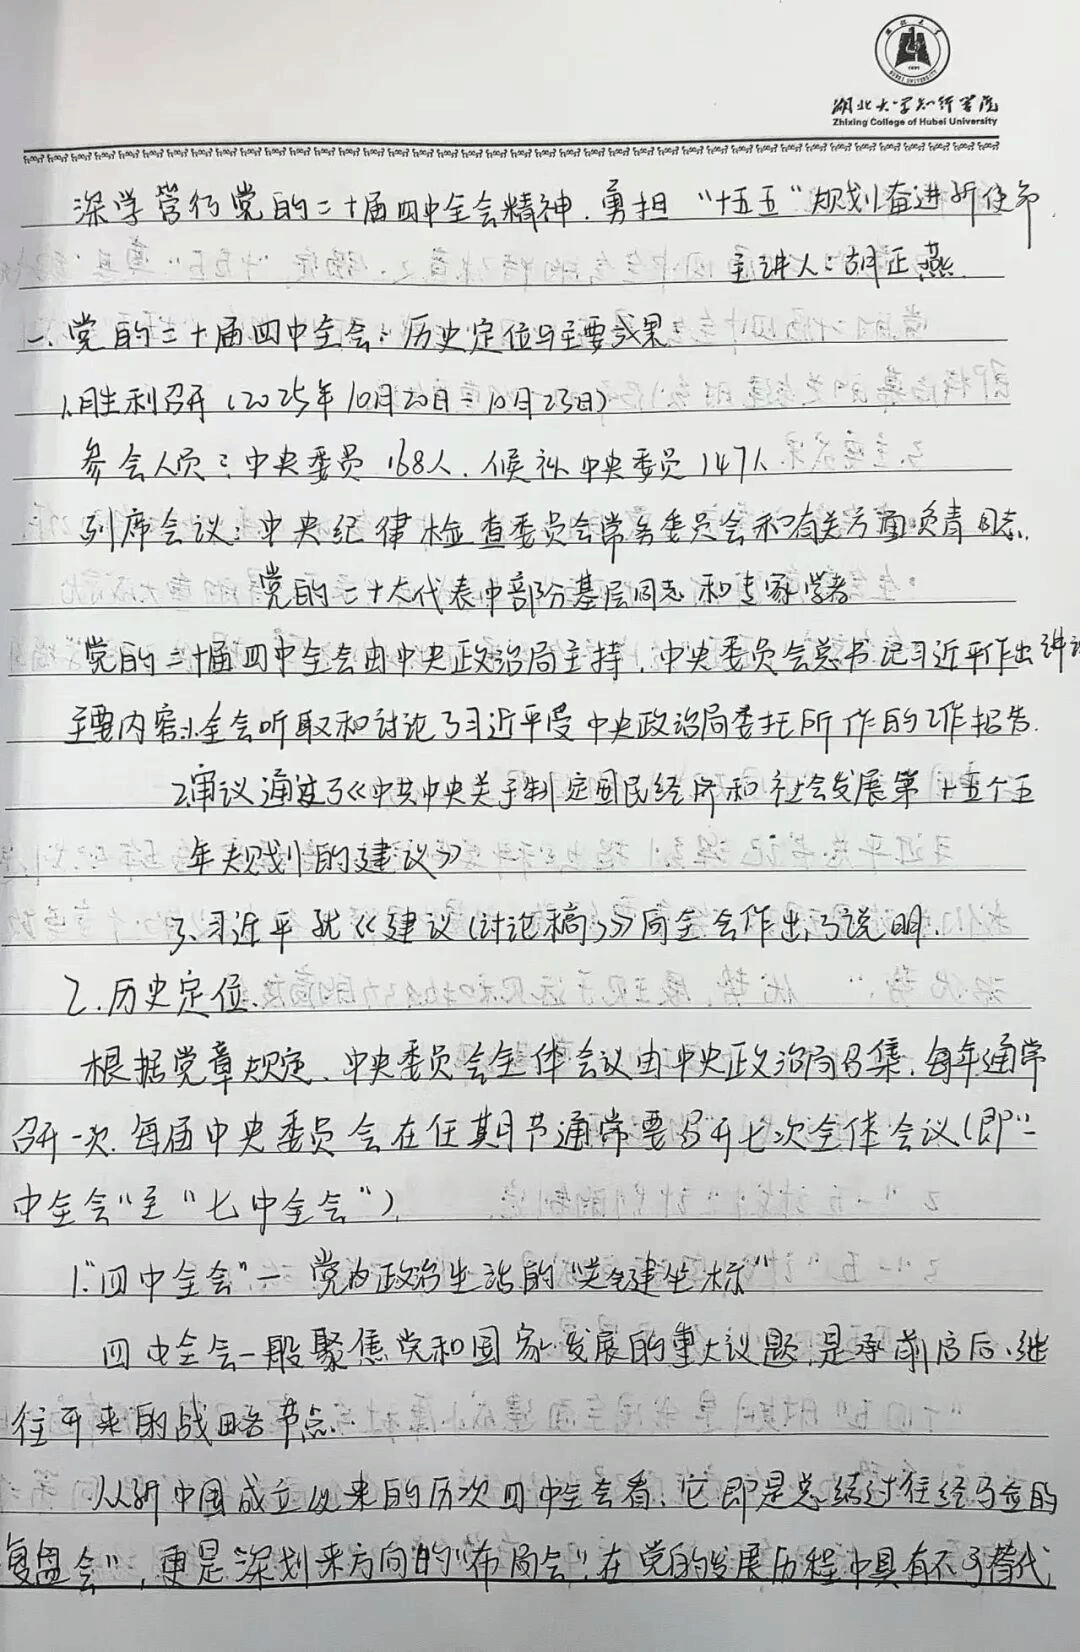 湖北大学知行学院
Zhixing College of Hubei University
深学笃行党的二十届四中全会精神.勇担“十五五”规划奋进新使命
主讲人:胡正燕
一、党的二十届四中全会:历史定位与主要成果
1.胜利召开(2025年10月20日-10月23日)
参会人员:中央委员168人.候补中央委员147人
列席会议:中央纪律检查委员会常务委员会和有关方面负责同志.
党的二十大代表中部分基层同志和专家学者
党的二十届四中全会由中央政治局主持,中央委员会总书记习近平作出讲话
主要内容:1.全会听取和讨论了习近平受中央政治局委托所作的工作报告.
2.审议通过了《中共中央关于制定国民经济和社会发展第十五个五
年规划的建议》
3.习近平就《建议(讨论稿)》向全会作出了说明.
2.历史定位.
根据党章规定、中央委员会全体会议由中央政治局召集,每年通常
召开一次.每届中央委员会在任期日节通常要召开七次全体会议(即“一
中全会”至“七中全会”)
1.“四中全会”一党内政治生活的“关键坐标”
四中全会一般聚焦党和国家发展的重大议题,是承前启后、继
往开来的战略节点.
从新中国成立以来的历次四中全会看,它即是总结过往经验的
复盘会”,更是深划来方向的“布局会”.在党的发展历程中具有不可替代